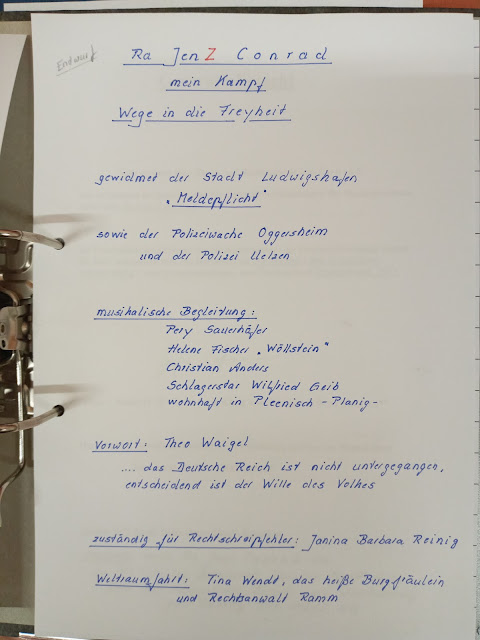 Entwurf
Ra JenZ Conrad
mein Kampf
Wege in die Freyheit
gewidmet der Stadt Ludwigshafen
"Meldepflicht"
sowie der Polizeiwache Oggersheim
und der Polizei Uelzen
musikalische Begleitung:
Pery Sauerhöfer
Helene Fischer "Wöllstein"
Christian Anders
Schlagerstar Wilfried Geib
wohnhaft in Pleenisch - Planig -
Vorwort: Theo Waigel
.... das Deutsche Reich ist nicht untergegangen,
entscheidend ist der Wille des Volkes
zuständig für Rechtschreipfehler: Janina Barbara Reinig
Weltraumfahrt: Tina Wendt, das heiße Burgfräulein
und Rechtsanwalt Ramm